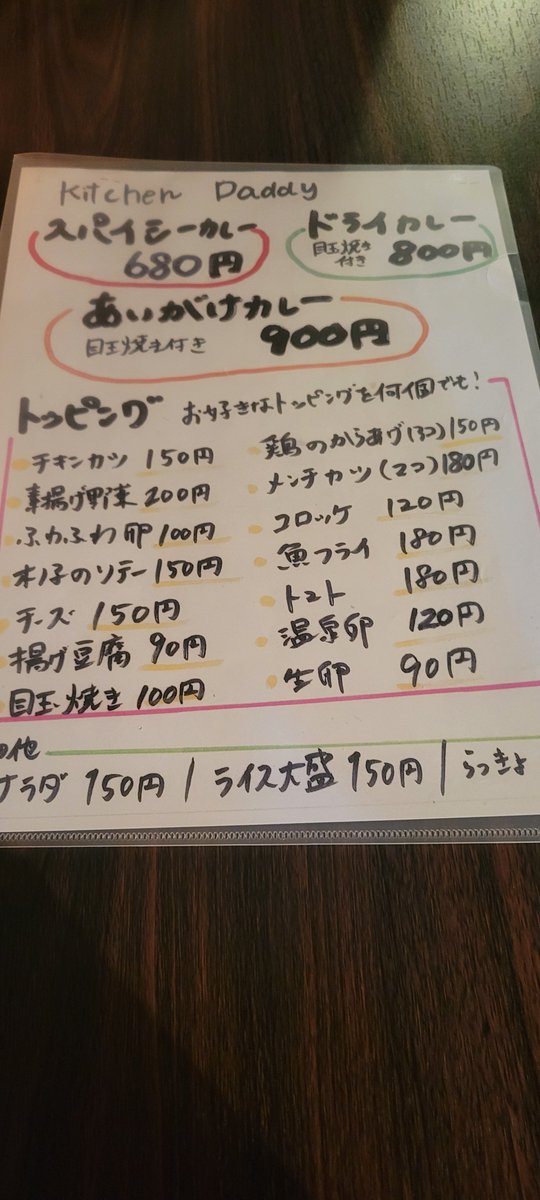 Kitchen Daddy
スパイシーカレー
680円
ドライカレー
目玉焼き
付き 800円
あいがけカレー
目玉焼き付き 900円
トッピング お好きなトッピングを何個でも!
チキンカツ 150円
素揚げ野菜 200円
ふわふわ卵 100円
木ノ子のソテー 150円
チーズ 150円
揚げ豆腐 90円
目玉焼き 100円
鶏のからあげ 150円
メンチカツ(2つ) 180円
コロッケ 120円
魚フライ 180円
トマト 180円
温泉卵 120円
生卵 90円
の他
サラダ 150円 / ライス大盛 150円 / らっきょ